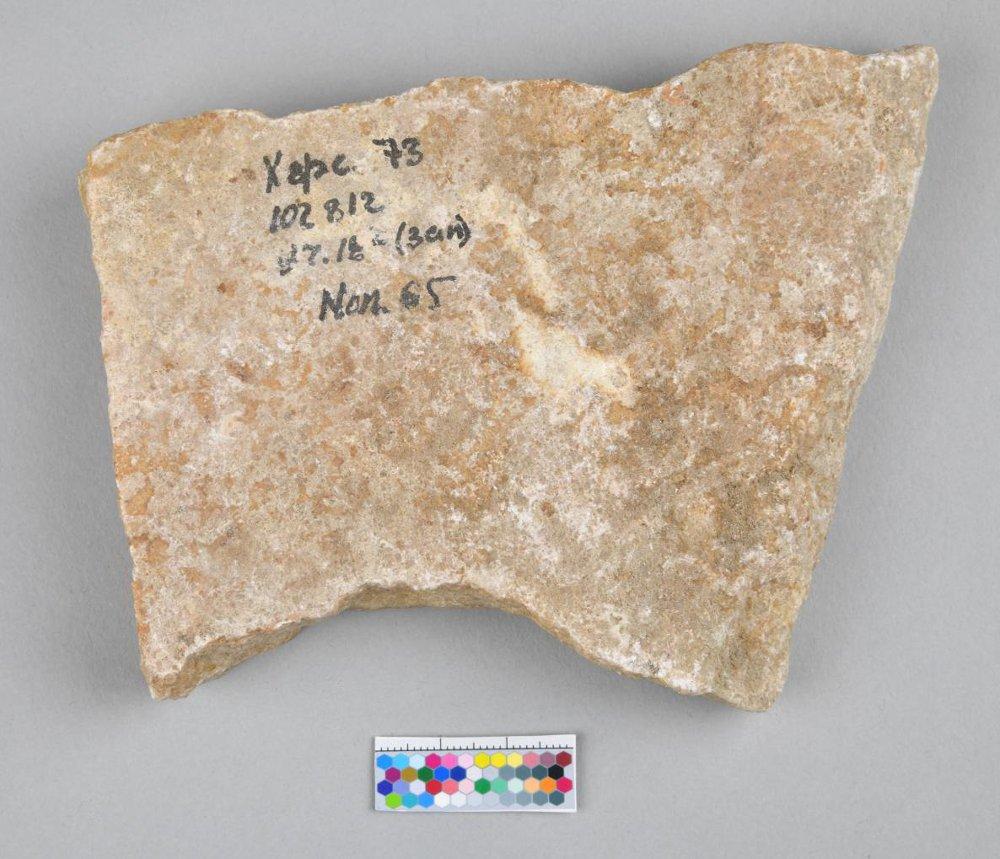 Херс. 73
102 812
47.18 (зап)
Пом. 65